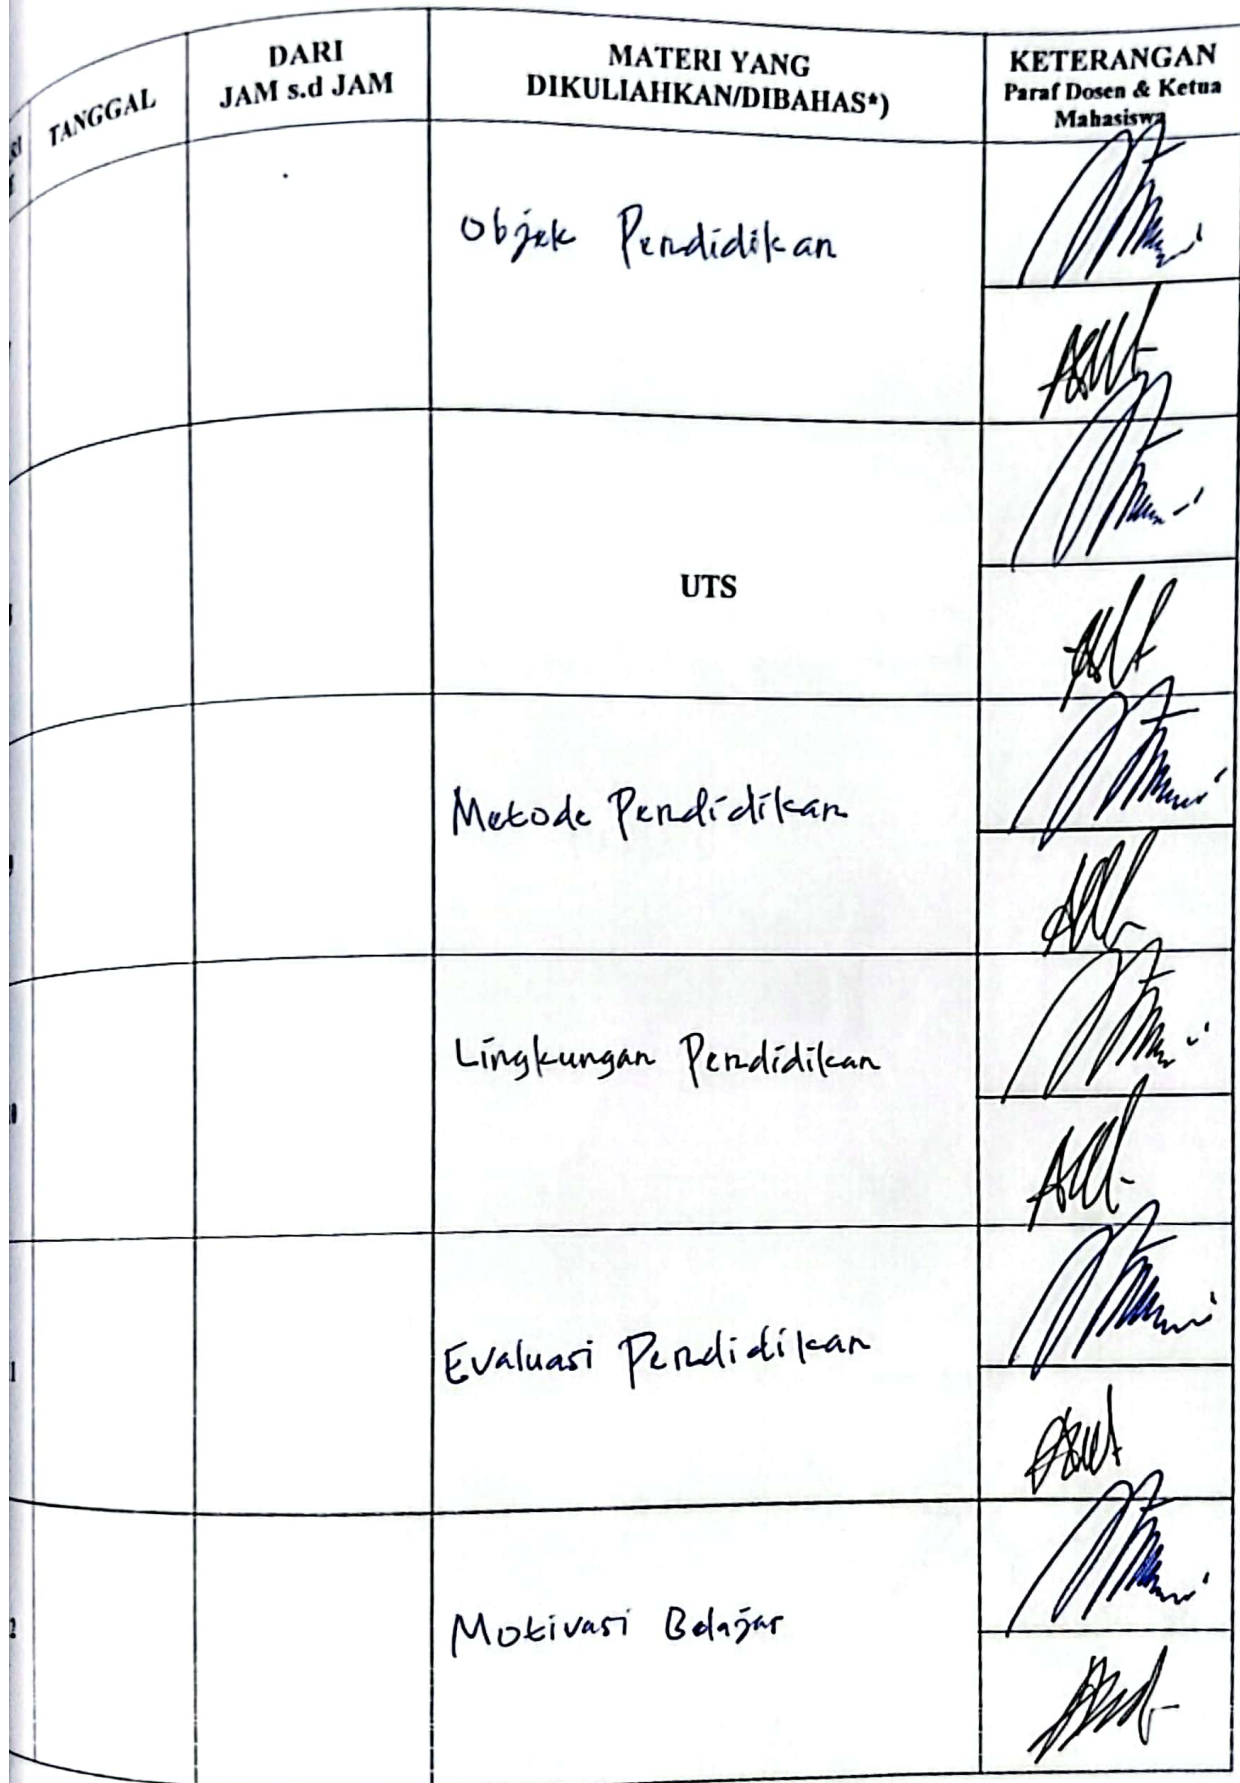 TANGGAL
DARI
JAM s.d JAM
MATERI YANG
DIKULIAHKAN/DIBAHAS*)
KETERANGAN
Paraf Dosen & Ketua
Mahasiswa
Objek Pendidikan
UTS
Metode Pendidikan
Lingkungan Pendidikan
Evaluasi Pendidikan
Motivasi Belajar